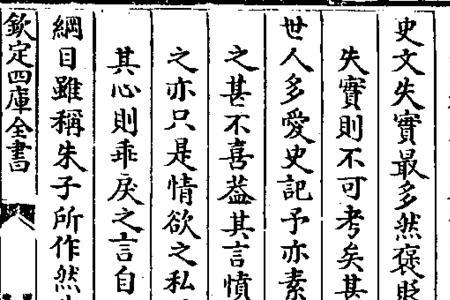 史文失實最多然褒貶
失實則不可考矣
世人多愛史記予亦素
之甚不喜葢其言憤
之亦只是情欲之私
其心則乖戾之言自
綱目雖稱朱子所作然
欽定四庫全書